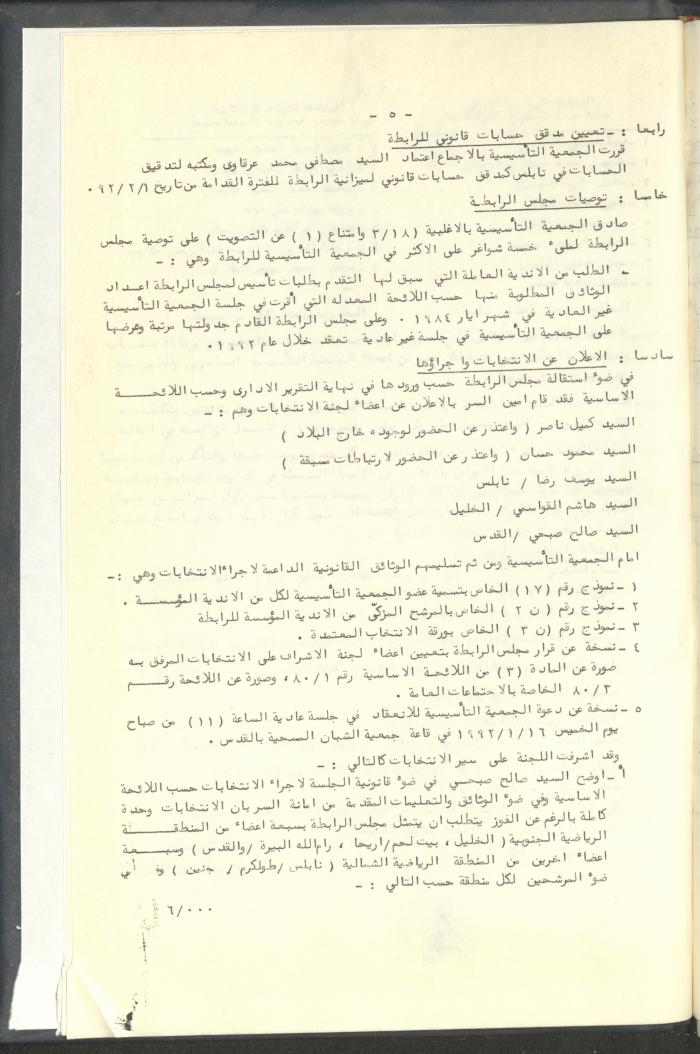 - ٥ -
رابعا : ـ تعيين مدقق حسابات قانوني للرابطة
قررت الجمعية التأسيسية بالاجماع اعتماد السيد مصطفى محمد عرقاوى ومكتبه لتدقيق
الحسابات في نابلس كمدقق حسابات قانوني لميزانية الرابطة للفترة القدامة من تاريخ ٩٢/٢/١ .
خامسا : توصيات مجلس الرابطة
صادق الجمعية التأسيسية بالاغلبية (٣/١٨ وامتناع (١) عن التصويت) على توصية مجلس
الرابطة لملىء خمسة شواغر على الاكثر في الجمعية التأسيسية للرابطة وهي : ـ
ـ الطلب من الاندية العاملة التي سبق لها التقدم بطلبات تأسيس لمجلس الرابطة اعداد
الوثائق المطلوبة منها حسب اللائحة المعدله التي أقرت في جلسة الجمعية التأسيسية
غير العادية في شهر ايار ١٩٨٤ . وعلى مجلس الرابطة القادم جدولتها مرتبة وعرضها
على الجمعية التأسيسية في جلسة غير عادية تعقد خلال عام ١٩٩٢ .
سادسا : الاعلان عن الانتخابات واجراؤها
في ضوء استقالة مجلس الرابطة حسب ورودها في نهاية التقرير الادارى وحسب اللائحة
الاساسية فقد قام امين السر بالاعلان عن اعضاء لجنة الانتخابات وهم : ـ
السيد كميل ناصر ( واعتذر عن الحضور لوجوده خارج البلاد )
السيد محمود حسان ( واعتذر عن الحضور لارتباطات مسبقة )
السيد يوسف رضا / نابلس
السيد هاشم القواسمي / الخليل
السيد صالح صبحي / القدس
امام الجمعية التأسيسية ومن ثم تسليمهم الوثائق القانونية الداعمة لاجراء الانتخابات وهي : ـ
١ ـ نموذج رقم (١٧) الخاص بتسمية عضو الجمعية التأسيسية لكل من الاندية المؤسسة .
٢ ـ نموذج رقم (ن ٢) الخاص بالمرشح المزكّى من الاندية المؤسسة للرابطة
٣ ـ نموذج رقم (ن ٣) الخاص بورقة الانتخاب المعتمدة .
٤ ـ نسخة عن قرار مجلس الرابطة بتعيين اعضاء لجنة الاشراف على الانتخابات المرفق به
صورة عن المادة (٣) من اللائحة الاساسية رقم ٨٠/١ ، وصورة عن اللائحة رقم
٨٠/٣ الخاصة بالاجتماعات العامة .
٥ ـ نسخة عن دعوة الجمعية التأسيسية للانعقاد في جلسة عادية الساعة (١١) من صباح
يوم الخميس ١٩٩٢/١/١٦ في قاعة جمعية الشبان المسيحية بالقدس .
وقد اشرفت اللجنة على سير الانتخابات كالتالي : ـ
أ ـ اوضح السيد صالح صبحي في ضوء قانونية الجلسة لاجراء الانتخابات حسب اللائحة
الاساسية وفي ضوء الوثائق والتعليمات المقدمة من امانة السر بان الانتخابات وحدة
كاملة بالرغم عن الفوز يتطلب ان يتمثل مجلس الرابطة بسبعة اعضاء عن المنطقة
الرياضية الجنوبية (الخليل ، بيت لحم/اريحا ، رام الله البيرة /والقدس ) وسبعة
اعضاء اخرين من المنطقة الرياضية الشمالية ( نابلس /طولكرم / جنين ) وفي
ضوء المرشحين لكل منطقة حسب التالي : ـ
٦/٠٠٠